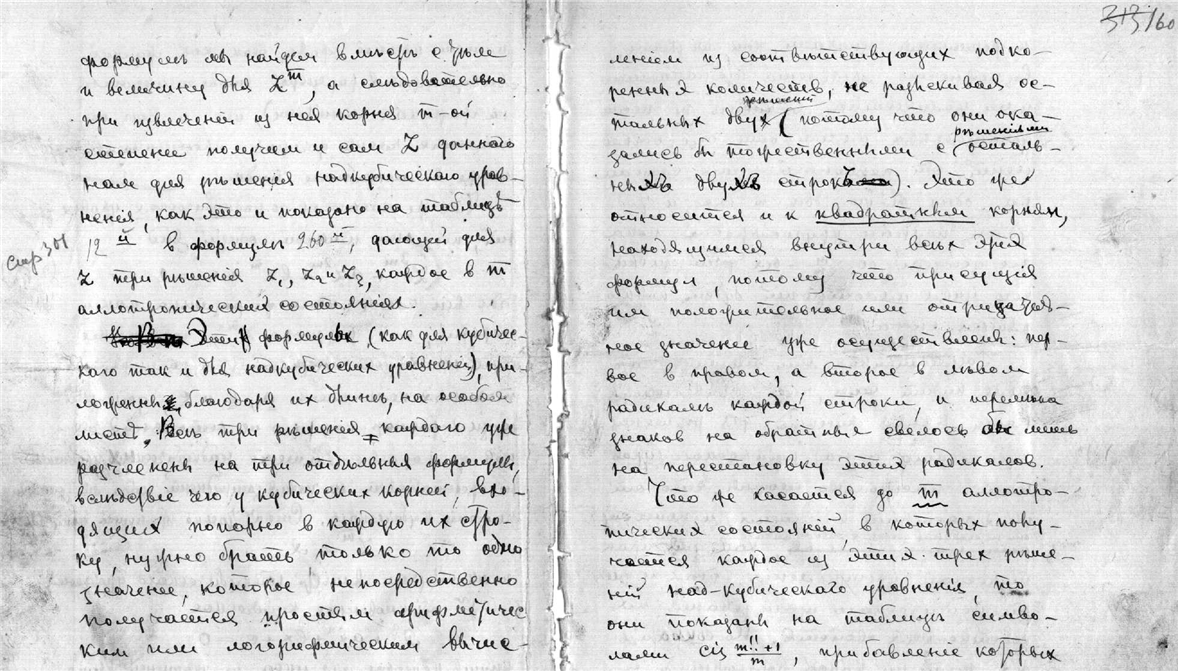 формулъ мы найдем вмѣстѣ с тѣм
и величину для Z^m, а слѣдовательно
при извлеченіи из нея корня m-ой
степени получем и сам Z даннаго
нам для рѣшенія надкубическаго урав-
ненія, как это и показано на таблицѣ
12ой, в формулѣ 260ой дающей для
стр 301
Z три рѣшенія Z₁, Z₂ и Z₃, каждое в m
аллотропических состояніях.
Эти формулы (как для кубичес-
каго так и для надкубических уравненій), при-
ложенны, благодаря их длинѣ, на особом
листѣ. Всѣ три рѣшенія каждаго уже
разчленены на три отдѣльныя формулы,
вслѣдствіе чего у кубических корней, вхо-
дящих попарно в каждую их стро-
ку, нужно брать только то одно
значеніе, которое непосредственно
получается простым арифметичес
ким или логарифмическим вычис-
313/60
леніем из соотвѣтствующих подко-
ренных количеств, не разыскивая ос-
тальных двух рѣшеній (потому что они ока-
зались бы тожественными с рѣшеніями осталь-
ных двух строк). Это же
относится и к квадратным корням,
находящимся внутри всѣх этих
формул, потому что присущія
им положительное или отрицатель-
ное значеніе уже осуществлены: пер-
вое в правом, а второе в лѣвом
радикалѣ каждой строки, и перемѣна
знаков на обратные свелось бы лишь
на перестановку этих радикалов.
Что же касается до m аллотро-
пических состояній, в которых полу-
чается каждое из этих трех рѣше-
ній над-кубическаго уравненія, то
они показаны на таблицѣ симво-
лами m!!+1/m, прибавленіе которых